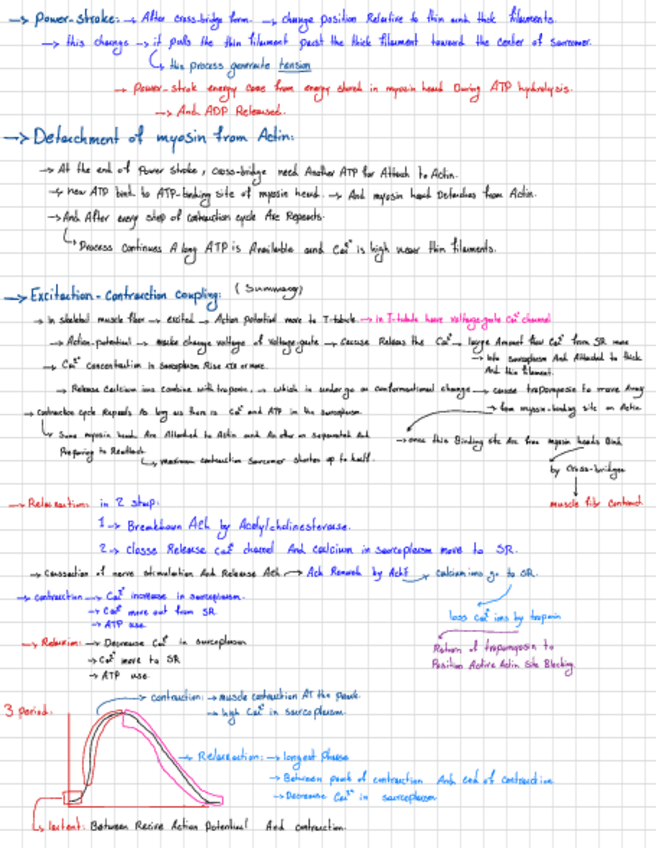 → Power-stroke: → After cross-bridge form. → change position Relative to thin and thick filaments.
→ this change → it pulls the thin filament past the thick filament toward the center of sarcomer.
this process generate tension
→ Power-strok energy come from energy stored in myosin head During ATP hydrolysis.
→ And ADP Released.
→ Detachment of myosin from Actin:
→ At the end of Power stroke, cross-bridge need Another ATP for Attach to Actin.
→ new ATP bind to ATP-binding site of myosin head. → And myosin head Detaches from Actin.
→ And After every step of contraction cycle Are Repeats.
Process continues A long ATP is Available and Ca²⁺ is high near thin filaments.
→ Excitation-Contraction coupling: (Summary)
→ in skeletal muscle fiber → excited → Action Potential move to T-tubule. → in T-tubule have voltage-gate Ca²⁺ channel
→ Action-potential → make change voltage of voltage-gate → Cacuse Releas the Ca²⁺ → large Amount flow Ca²⁺ from SR more
→ into sarcoplasm And Attached to thick
And thin filament.
→ Ca²⁺ concentration in sarcoplasm Rise or more.
→ Release Calcium ions combine with troponin, → which in undergo an conformational change → cause tropomyosin to move Away
→ from myosin-binding site on Actin.
→ contraction cycle Repeats As long as there is Ca²⁺ and ATP in the sarcoplasm.
Some myosin head Are Attached to Actin and An other on seperated And
Preparing to Reattach
→ maximum contraction sarcomer shortes up to half.
→ once this Binding site Are free myosin heads Bind
by Cross-bridges
muscle fibr contract.
→ Relaxation: in 2 step:
1 → Breakdown Ach by Acetylcholinesterase.
2 → closse Release Ca²⁺ channel And calcium in sarcoplasm move to SR.
→ Cessation of nerve stimulation And Release Ach → Ach Remove by AchE → calcium ions go to SR.
loss Ca²⁺ ions by troponin
Return of tropomyosin to
Position Active Actin Site Blocking.
→ contraction → Ca²⁺ increase in sarcoplasm.
→ Ca²⁺ more out from SR.
→ ATP use.
→ Relaxion: → Decrease Ca²⁺ in sarcoplasm
→ Ca²⁺ move to SR
→ ATP use
3 period:
contraction: → muscle contraction At the peak.
→ high Ca²⁺ in sarcoplasm.
→ Relaxation: → longest Phase
→ Between peak of contraction And end of contraction
→ Decrease Ca²⁺ in sarcoplasm
latent: Between Recive Action Potential And contraction.